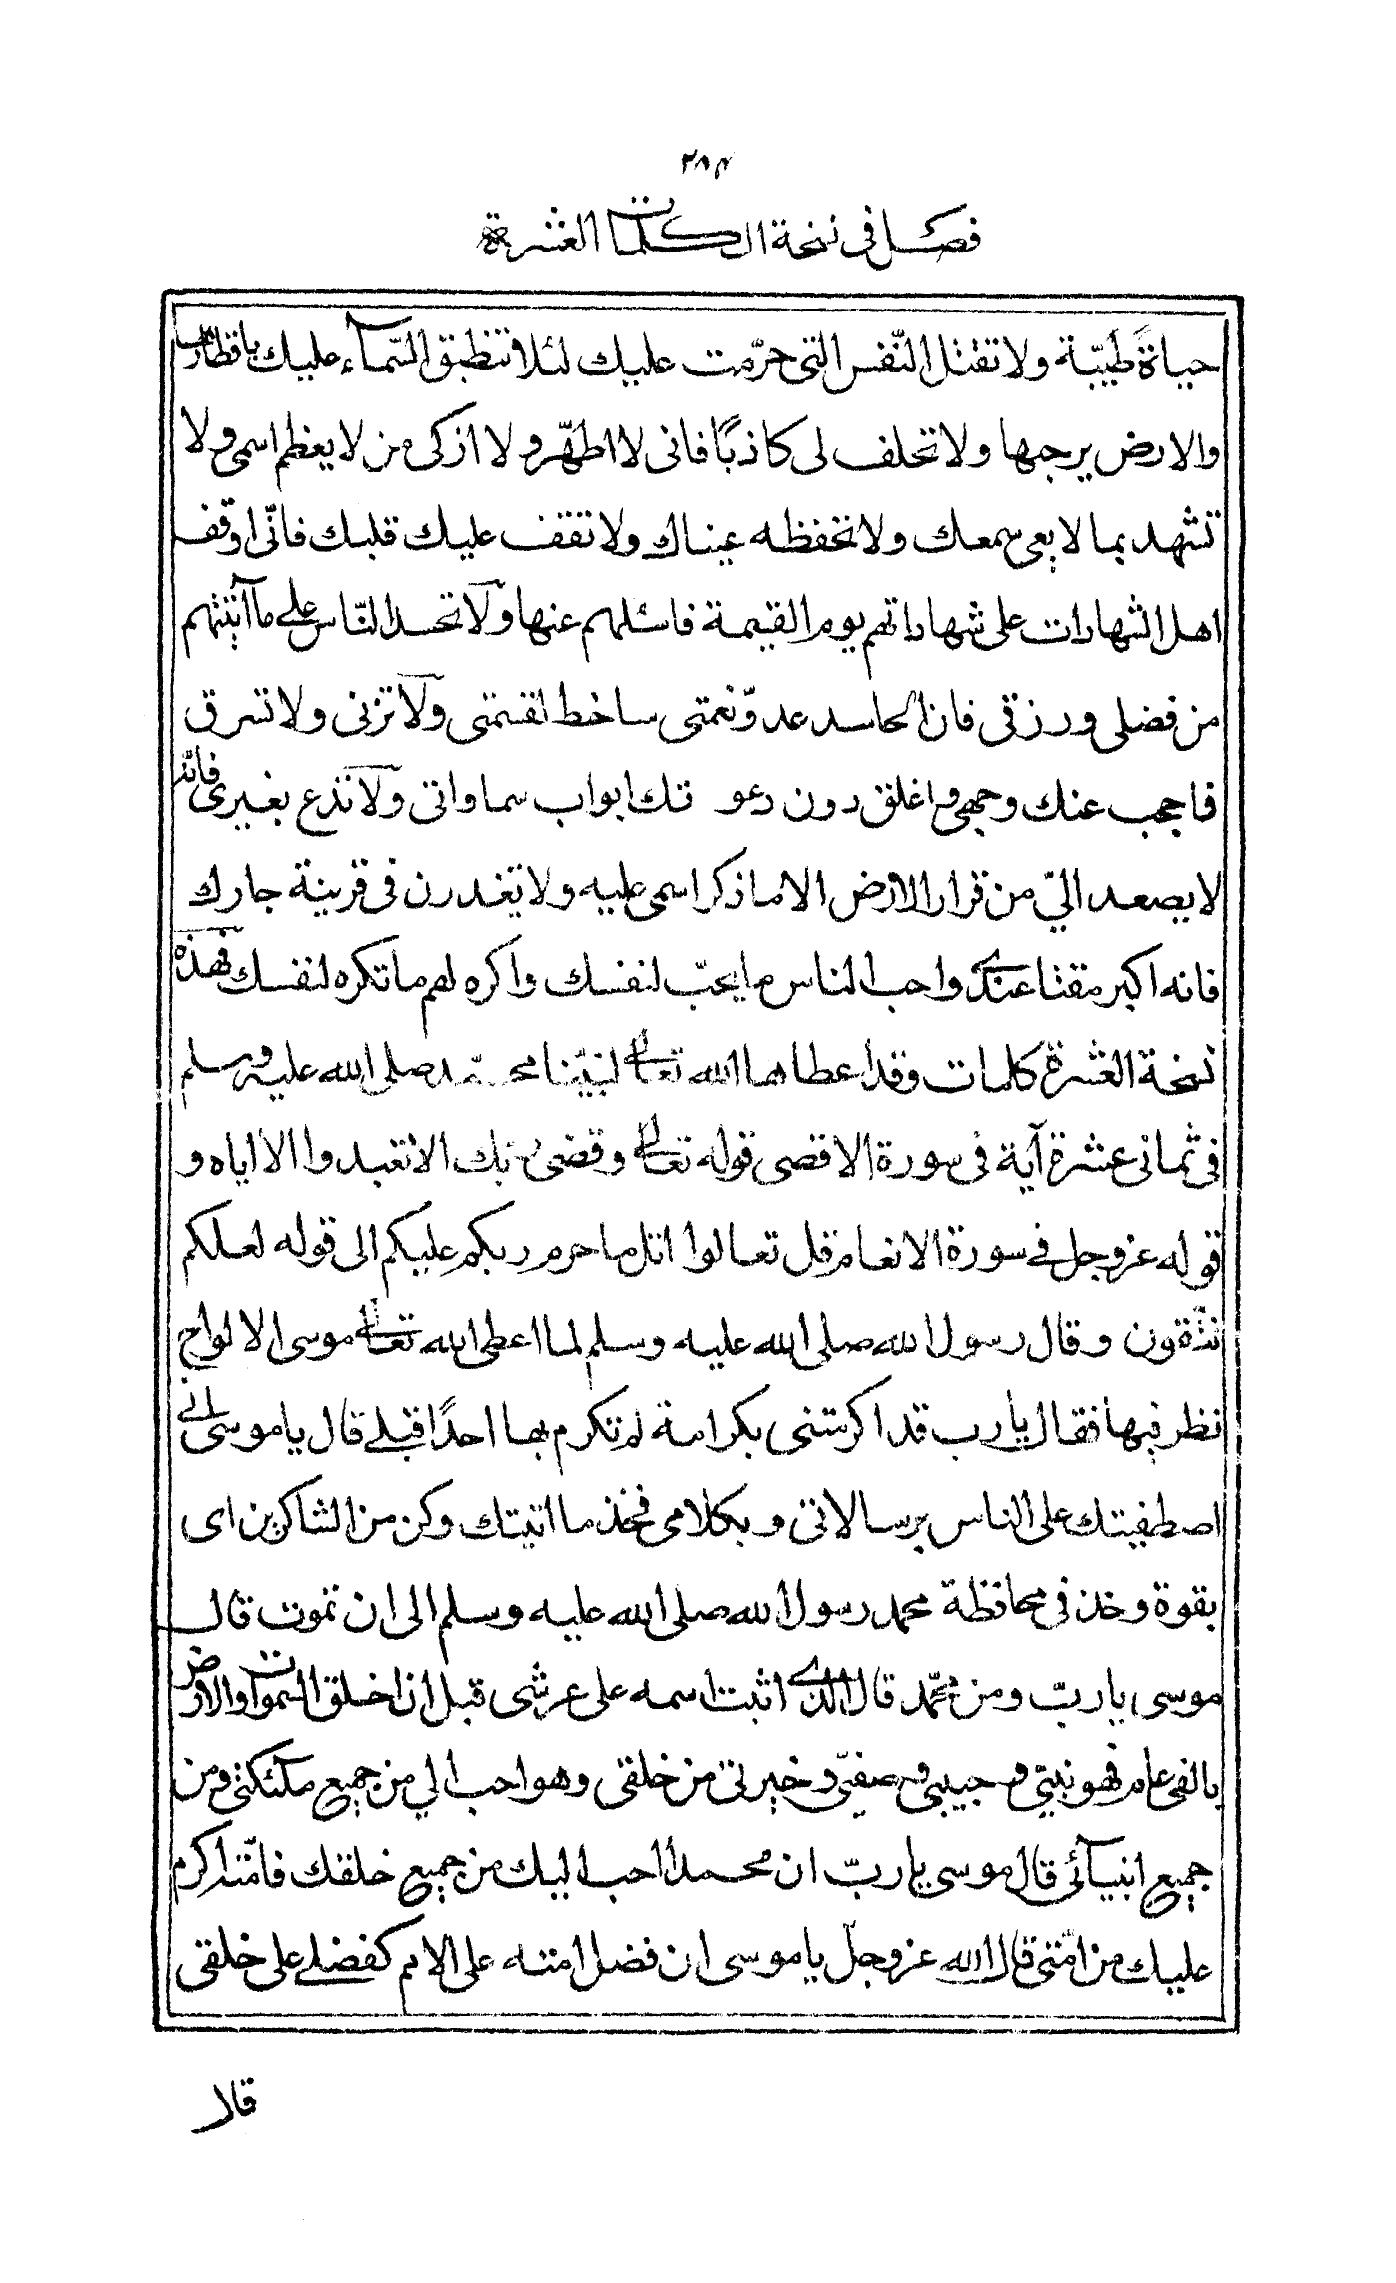 ٢٨٤
فصل فى نسخة الكلمات العشرة
حياةً طيّبة ولا تقتل النّفس التى حرّمت عليك لئلا تنطبق السّمآء عليك باقطارها
والارض برحبها ولا تحلف لى كاذبًا فانى لا اطهّر ولا ازكى من لا يعظم اسمى ولا
تشهد بما لا يعى سمعك ولا تحفظه عيناك ولا تقف عليك قلبك فانّى اوقف
اهل الشهادات على شهاداتهم يوم القيمة فاسئلهم عنها ولا تحسد النّاس على ما آتيتهم
من فضلى ورزقى فان الحاسد عدوّ نعمتى ساخط لقسمتى ولا تزنى ولا تسرق
فاحجب عنك وجهى واغلق دون دعوتك ابواب سماواتى ولا تذع بغيرى فانه
لا يصعد الىّ من قرار الارض الا ما ذكر اسمى عليه ولا تغدرن فى قرينة جارك
فانه اكبر مقتا عندى واحب الناس ما يحبّ لنفسك واكره لهم ما تكره لنفسك فهذه
نسخة العشرة كلمات وقد اعطاها الله تعالى لنبيّنا محمّد صلى الله عليه وسلم
فى ثمانى عشرة آية فى سورة الاقصى قوله تعالى وقضى ربك الا تعبدوا الا اياه و
قوله عز وجل فى سورة الانعام قل تعالوا اتل ما حرم ربكم عليكم الى قوله لعلكم
تتقون وقال رسول الله صلى الله عليه وسلم لما اعطى الله تعالى موسى الالواح
نظر فيها فقال يا رب قد اكرمتنى بكرامة لم تكرم بها احدًا قبلى قال يا موسى انى
اصطفيتك على الناس برسالاتى وبكلامى فخذ ما اتيتك وكن من الشاكرين اى
بقوة وخذ فى محافظة محمد رسول الله صلى الله عليه وسلم الى ان تموت قال
موسى يا ربّ ومن محمّد قال الذى اثبت اسمه على عرشى قبل ان اخلق السموات والارض
بالفى عام فهو نبيّى وحبيبى وصفيّى وخيرتى من خلقى وهو احب الي من جميع ملئكتى ومن
جميع انبيآئى قال موسى يا ربّ ان محمدا احب اليك من جميع خلقك فامّته اكرم
عليك من امّتى قال الله عز وجلّ يا موسى ان فضل امته على الامم كفضلى على خلقى
قال